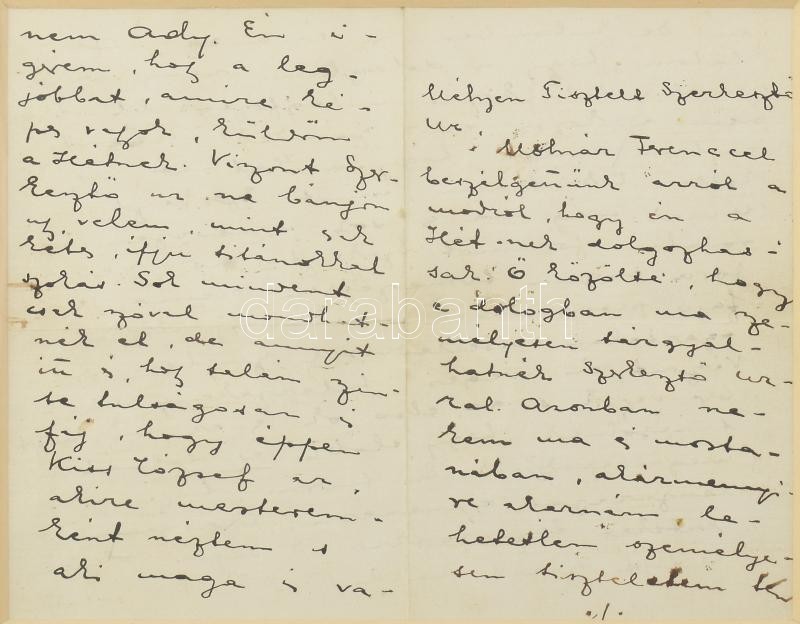 nem Ady. Én i-
gérem, hogy a leg-
jobbat, amire ké-
pes vagyok, küldöm
a Hétnek. Viszont Szer-
kesztő úr ne bánjon
úgy velem, mint sok
kétes, ifju titánokkal
szokás. Sok mindent
csak szóval mondhat-
nék el, de annyit
itt is, hogy talán szin-
te tulságosan is
fáj, hogy éppen
Kiss József az,
akire mesterem-
ként néztem s
aki maga is va-
Mélyen Tisztelt Szerkesztő
Úr, Molnár Ferenccel
beszélgettünk arról a
módról, hogy én a
Hét-nek dolgozhas-
sak. Ő közölte, hogy
e dologban ma sze-
mélyesen tárgyal-
hatnék Szerkesztő úr-
ral. Azonban ne-
kem ma és mosta-
nában, akármennyi-
re akarnám le-
hetetlen személye-
sen tiszteletem ten
./.
darabanth